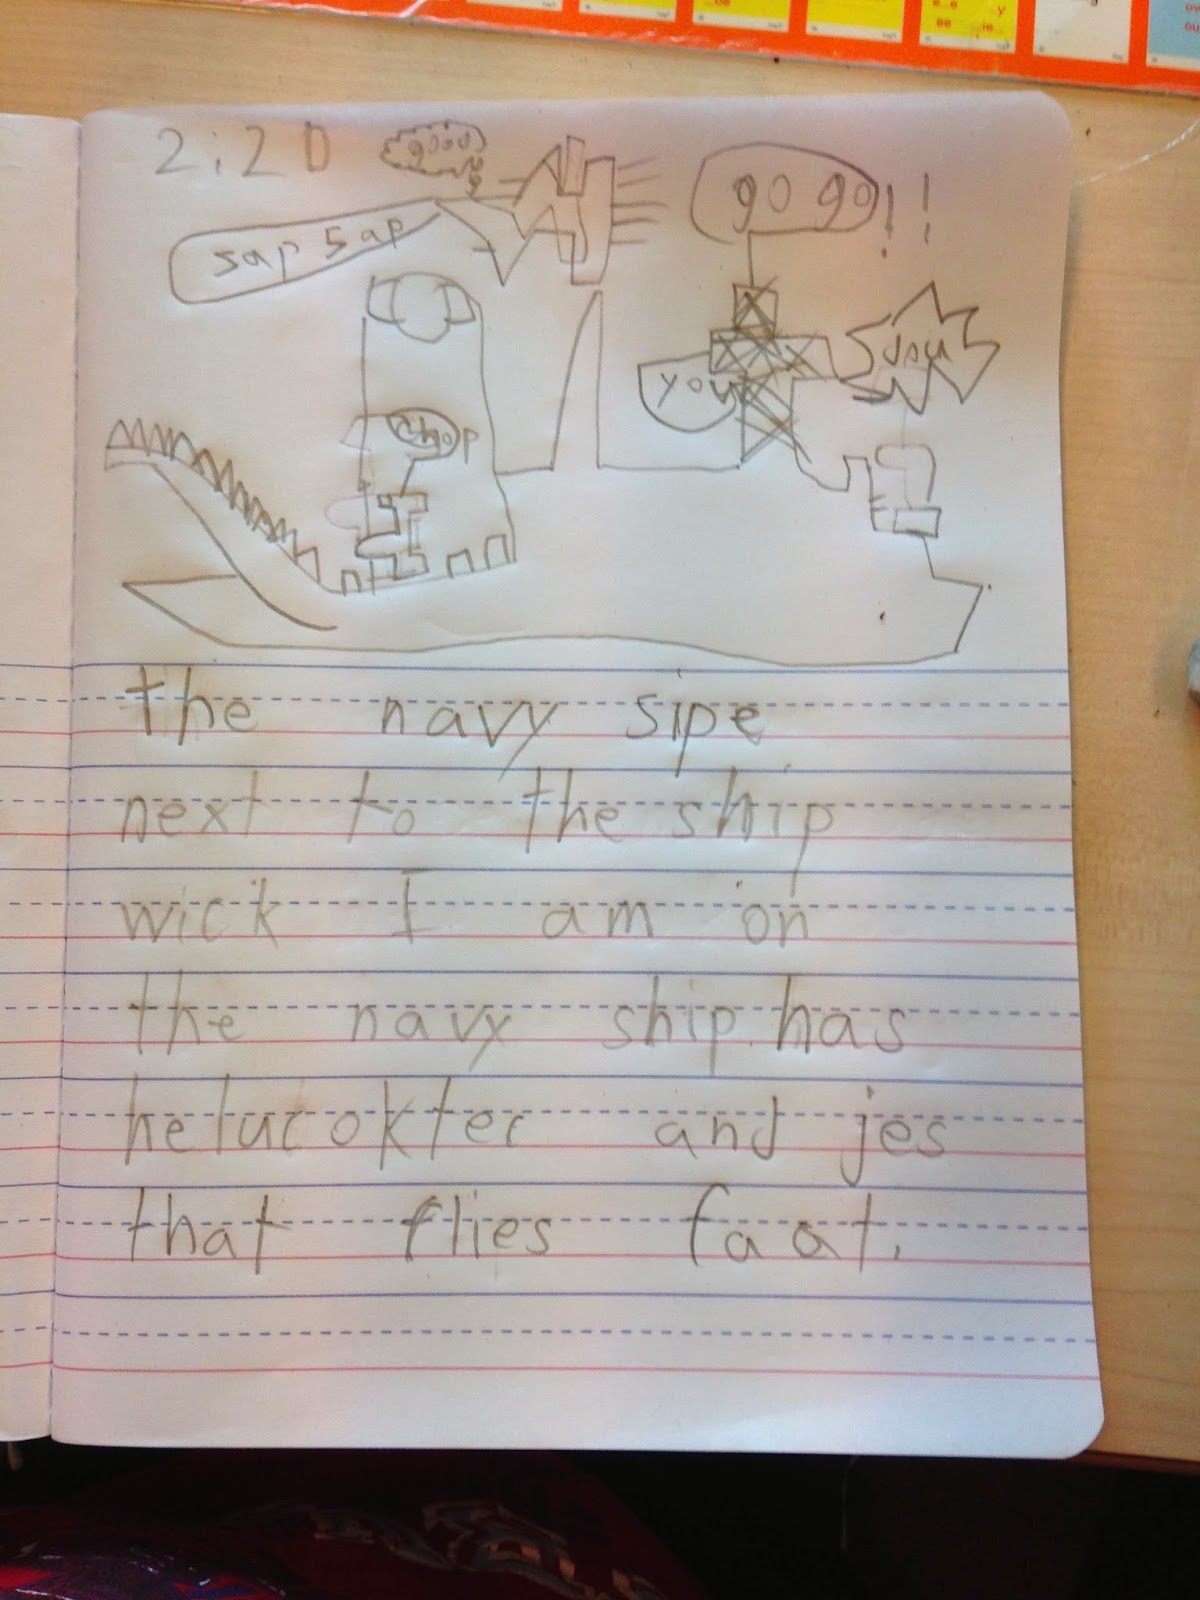 2:20
gooo
sap sap
go go!!
you
chop
the navy sipe
next to the ship
wick I am on
the navy ship has
helucokter and jes
that flies faat.